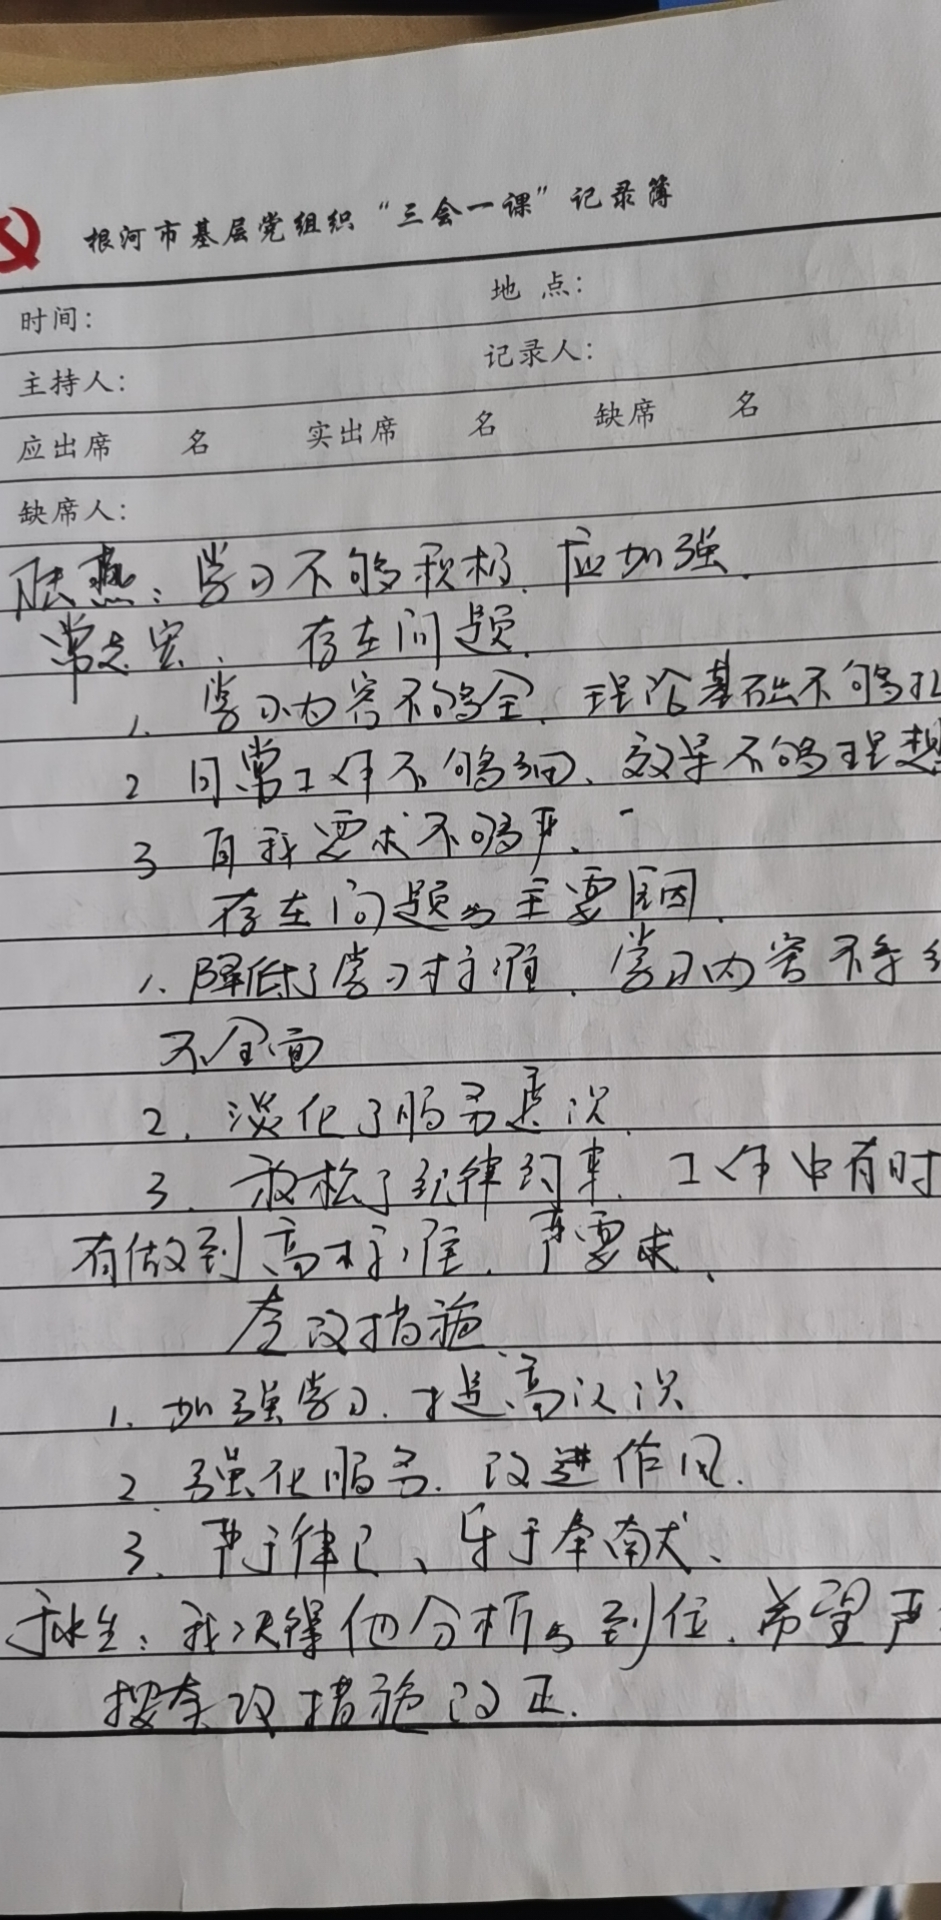 根河市基层党组织“三会一课”记录簿
时间： 地点：
主持人： 记录人：
应出席 名 实出席 名 缺席 名
缺席人：
陆燕：学习不够积极，应加强．
常志宏． 存在问题．
1．学习内容不够全．理论基础不够扎
2 日常工作不够细、效果不够理想
3 自我要求不够严、
存在问题的主要原因．
1．降低了学习标准．学习内容不系
不全面
2．淡化了服务意识
3．放松了纪律约束．工作中有时
有做到高标准．严要求、
整改措施
1．加强学习．提高认识
2．强化服务．改进作风．
3．严于律己、乐于奉献、
我觉得他分析的到位．希望严
按整改措施改正．